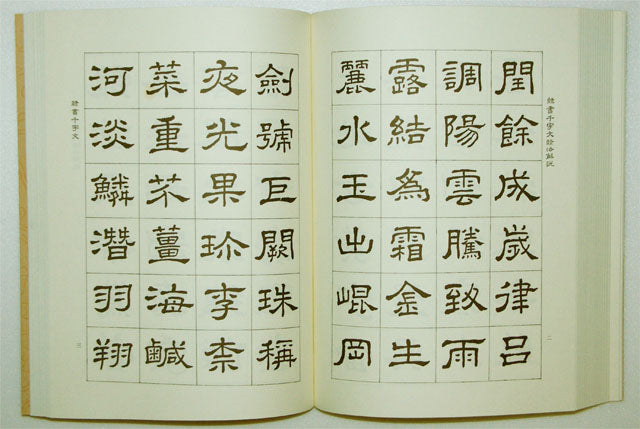 隸書千字文
二
閏餘成歲律呂
調陽雲騰致雨
露結為霜金生
麗水玉出崐岡
劍號巨闕珠稱
夜光果珍李柰
菜重芥薑海鹹
河淡鱗潛羽翔
隸書千字文
三